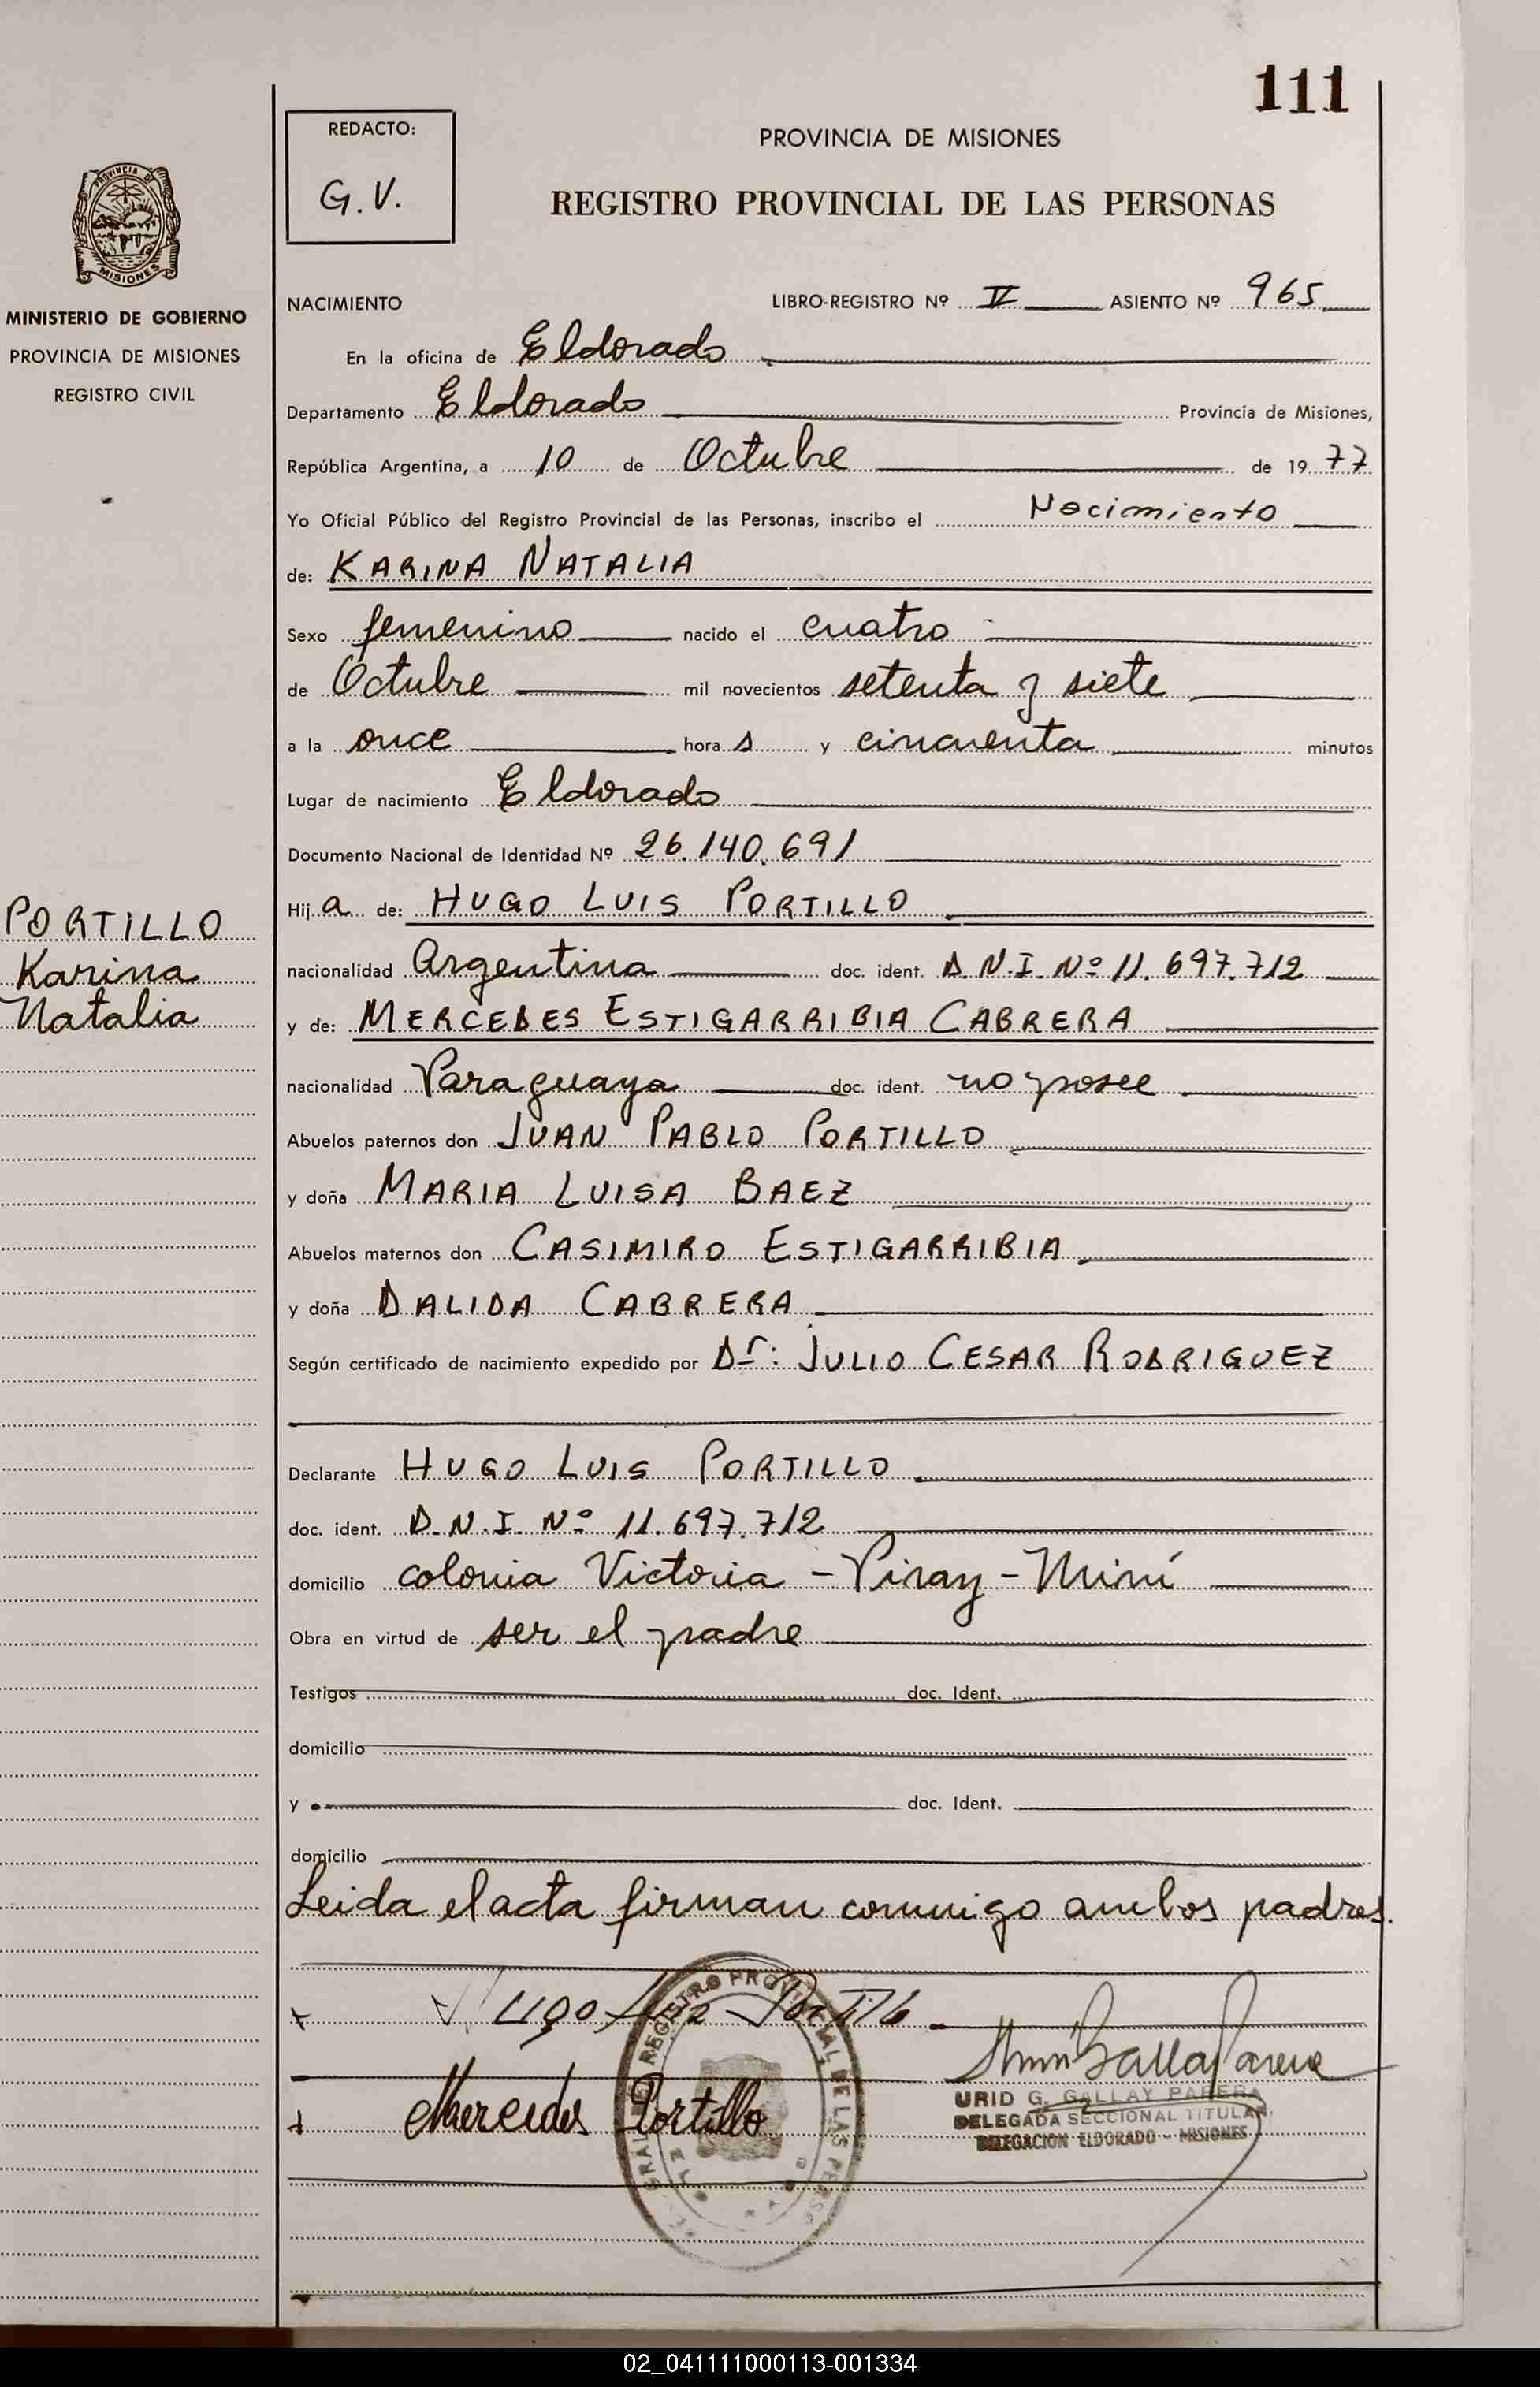 111
REDACTO:
G.V.
PROVINCIA DE MISIONES
REGISTRO PROVINCIAL DE LAS PERSONAS
PROVINCIA DE
MISIONES
MINISTERIO DE GOBIERNO
PROVINCIA DE MISIONES
REGISTRO CIVIL
NACIMIENTO LIBRO-REGISTRO Nº V ASIENTO Nº 965
En la oficina de Eldorado
Departamento Eldorado Provincia de Misiones,
República Argentina, a 10 de Octubre de 1977
Yo Oficial Público del Registro Provincial de las Personas, inscribo el Nacimiento
de: KARINA NATALIA
Sexo femenino nacido el cuatro
de Octubre mil novecientos setenta y siete
a la once hora s y cincuenta minutos
Lugar de nacimiento Eldorado
Documento Nacional de Identidad Nº 26.140.691
Hij a de: HUGO LUIS PORTILLO
nacionalidad Argentina doc. ident. D.N.I. Nº 11.697.712
y de: MERCEDES ESTIGARRIBIA CABRERA
nacionalidad Paraguaya doc. ident. no posee
Abuelos paternos don JUAN PABLO PORTILLO
y doña MARIA LUISA BAEZ
Abuelos maternos don CASIMIRO ESTIGARRIBIA
y doña DALIDA CABRERA
Según certificado de nacimiento expedido por Dr: JULIO CESAR RODRIGUEZ
Declarante HUGO LUIS PORTILLO
doc. ident. D.N.I. Nº 11.697.712
domicilio colonia Victoria - Piray - Miní
Obra en virtud de ser el padre
Testigos doc. Ident.
domicilio
y doc. Ident.
domicilio
Leida el acta firman conmigo ambos padres.
PORTILLO
Karina
Natalia
Hugo Luis Portillo
Mercedes Portillo
REGISTRO PROVINCIAL DE LAS PERS
URID G. GALLAY PARERA
DELEGADA SECCIONAL TITULAR
DELEGACION ELDORADO - MISIONES
02_041111000113-001334